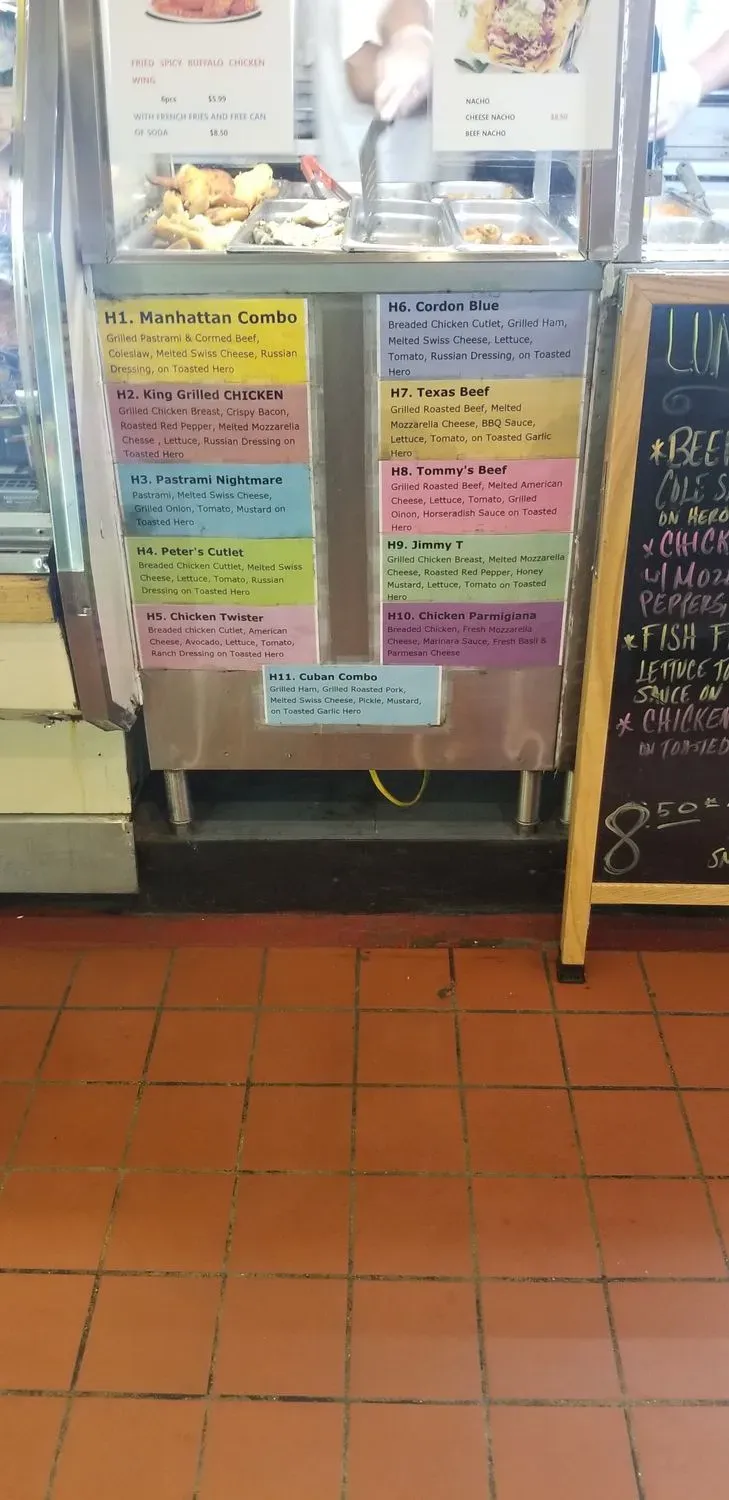 FRIED SPICY BUFFALO CHICKEN
WING
6pcs $5.99
WITH FRENCH FRIES AND FREE CAN
OF SODA $8.50
NACHO
CHEESE NACHO $8.50
BEEF NACHO
H1. Manhattan Combo
Grilled Pastrami & Cormed Beef,
Coleslaw, Melted Swiss Cheese, Russian
Dressing, on Toasted Hero
H2. King Grilled CHICKEN
Grilled Chicken Breast, Crispy Bacon,
Roasted Red Pepper, Melted Mozzarella
Chesse , Lettuce, Russian Dressing on
Toasted Hero
H3. Pastrami Nightmare
Pastrami, Melted Swiss Cheese,
Grilled Onion, Tomato, Mustard on
Toasted Hero
H4. Peter's Cutlet
Breaded Chicken Cuttlet, Melted Swiss
Cheese, Lettuce, Tomato, Russian
Dressing on Toasted Hero
H5. Chicken Twister
Breaded chicken Cutlet, American
Cheese, Avocado, Lettuce, Tomato,
Ranch Dressing on Toasted Hero
H6. Cordon Blue
Breaded Chicken Cutlet, Grilled Ham,
Melted Swiss Cheese, Lettuce,
Tomato, Russian Dressing, on Toasted
Hero
H7. Texas Beef
Grilled Roasted Beef, Melted
Mozzarella Cheese, BBQ Sauce,
Lettuce, Tomato, on Toasted Garlic
Hero
H8. Tommy's Beef
Grilled Roasted Beef, Melted American
Cheese, Lettuce, Tomato, Grilled
Oinon, Horseradish Sauce on Toasted
Hero
H9. Jimmy T
Grilled Chicken Breast, Melted Mozzarella
Cheese, Roasted Red Pepper, Honey
Mustard, Lettuce, Tomato on Toasted
Hero
H10. Chicken Parmigiana
Breaded Chicken, Fresh Mozzarella
Cheese, Marinara Sauce, Fresh Basil &
Parmesan Cheese
H11. Cuban Combo
Grilled Ham, Grilled Roasted Pork,
Melted Swiss Cheese, Pickle, Mustard,
on Toasted Garlic Hero
LUN
*BEEF
COLE S
ON HERO
*CHICK
W/ MOZZ
PEPPERS,
*FISH F
LETTUCE TO
SAUCE ON
*CHICKEN
ON TOASTED
8.50